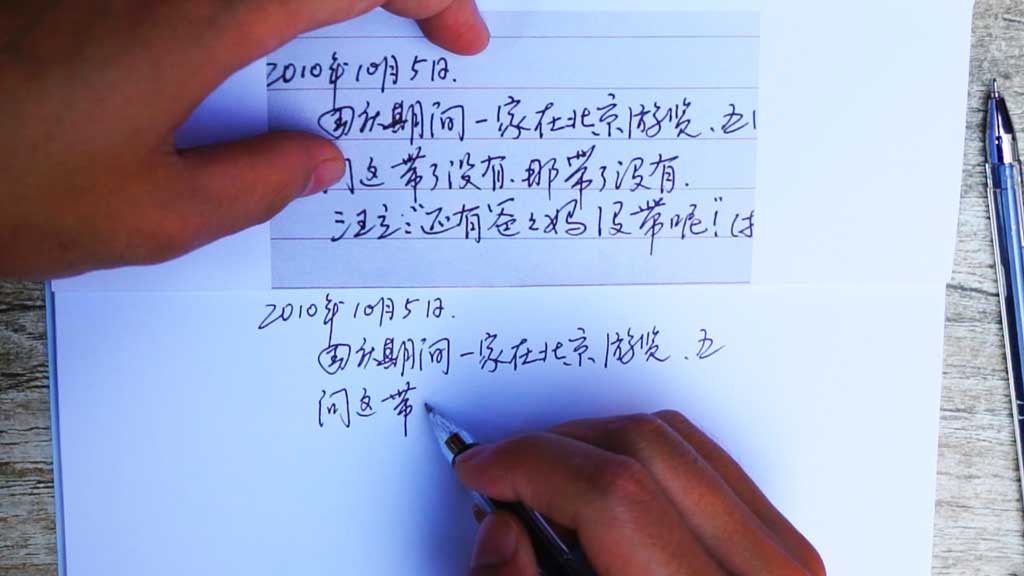 2010年10月5日.
国庆期间一家在北京游览.五
问这带了没有.那带了没有.
汪立:"还有爸々妈没带呢!"(
2010年10月5日.
国庆期间一家在北京游览.五
问这带